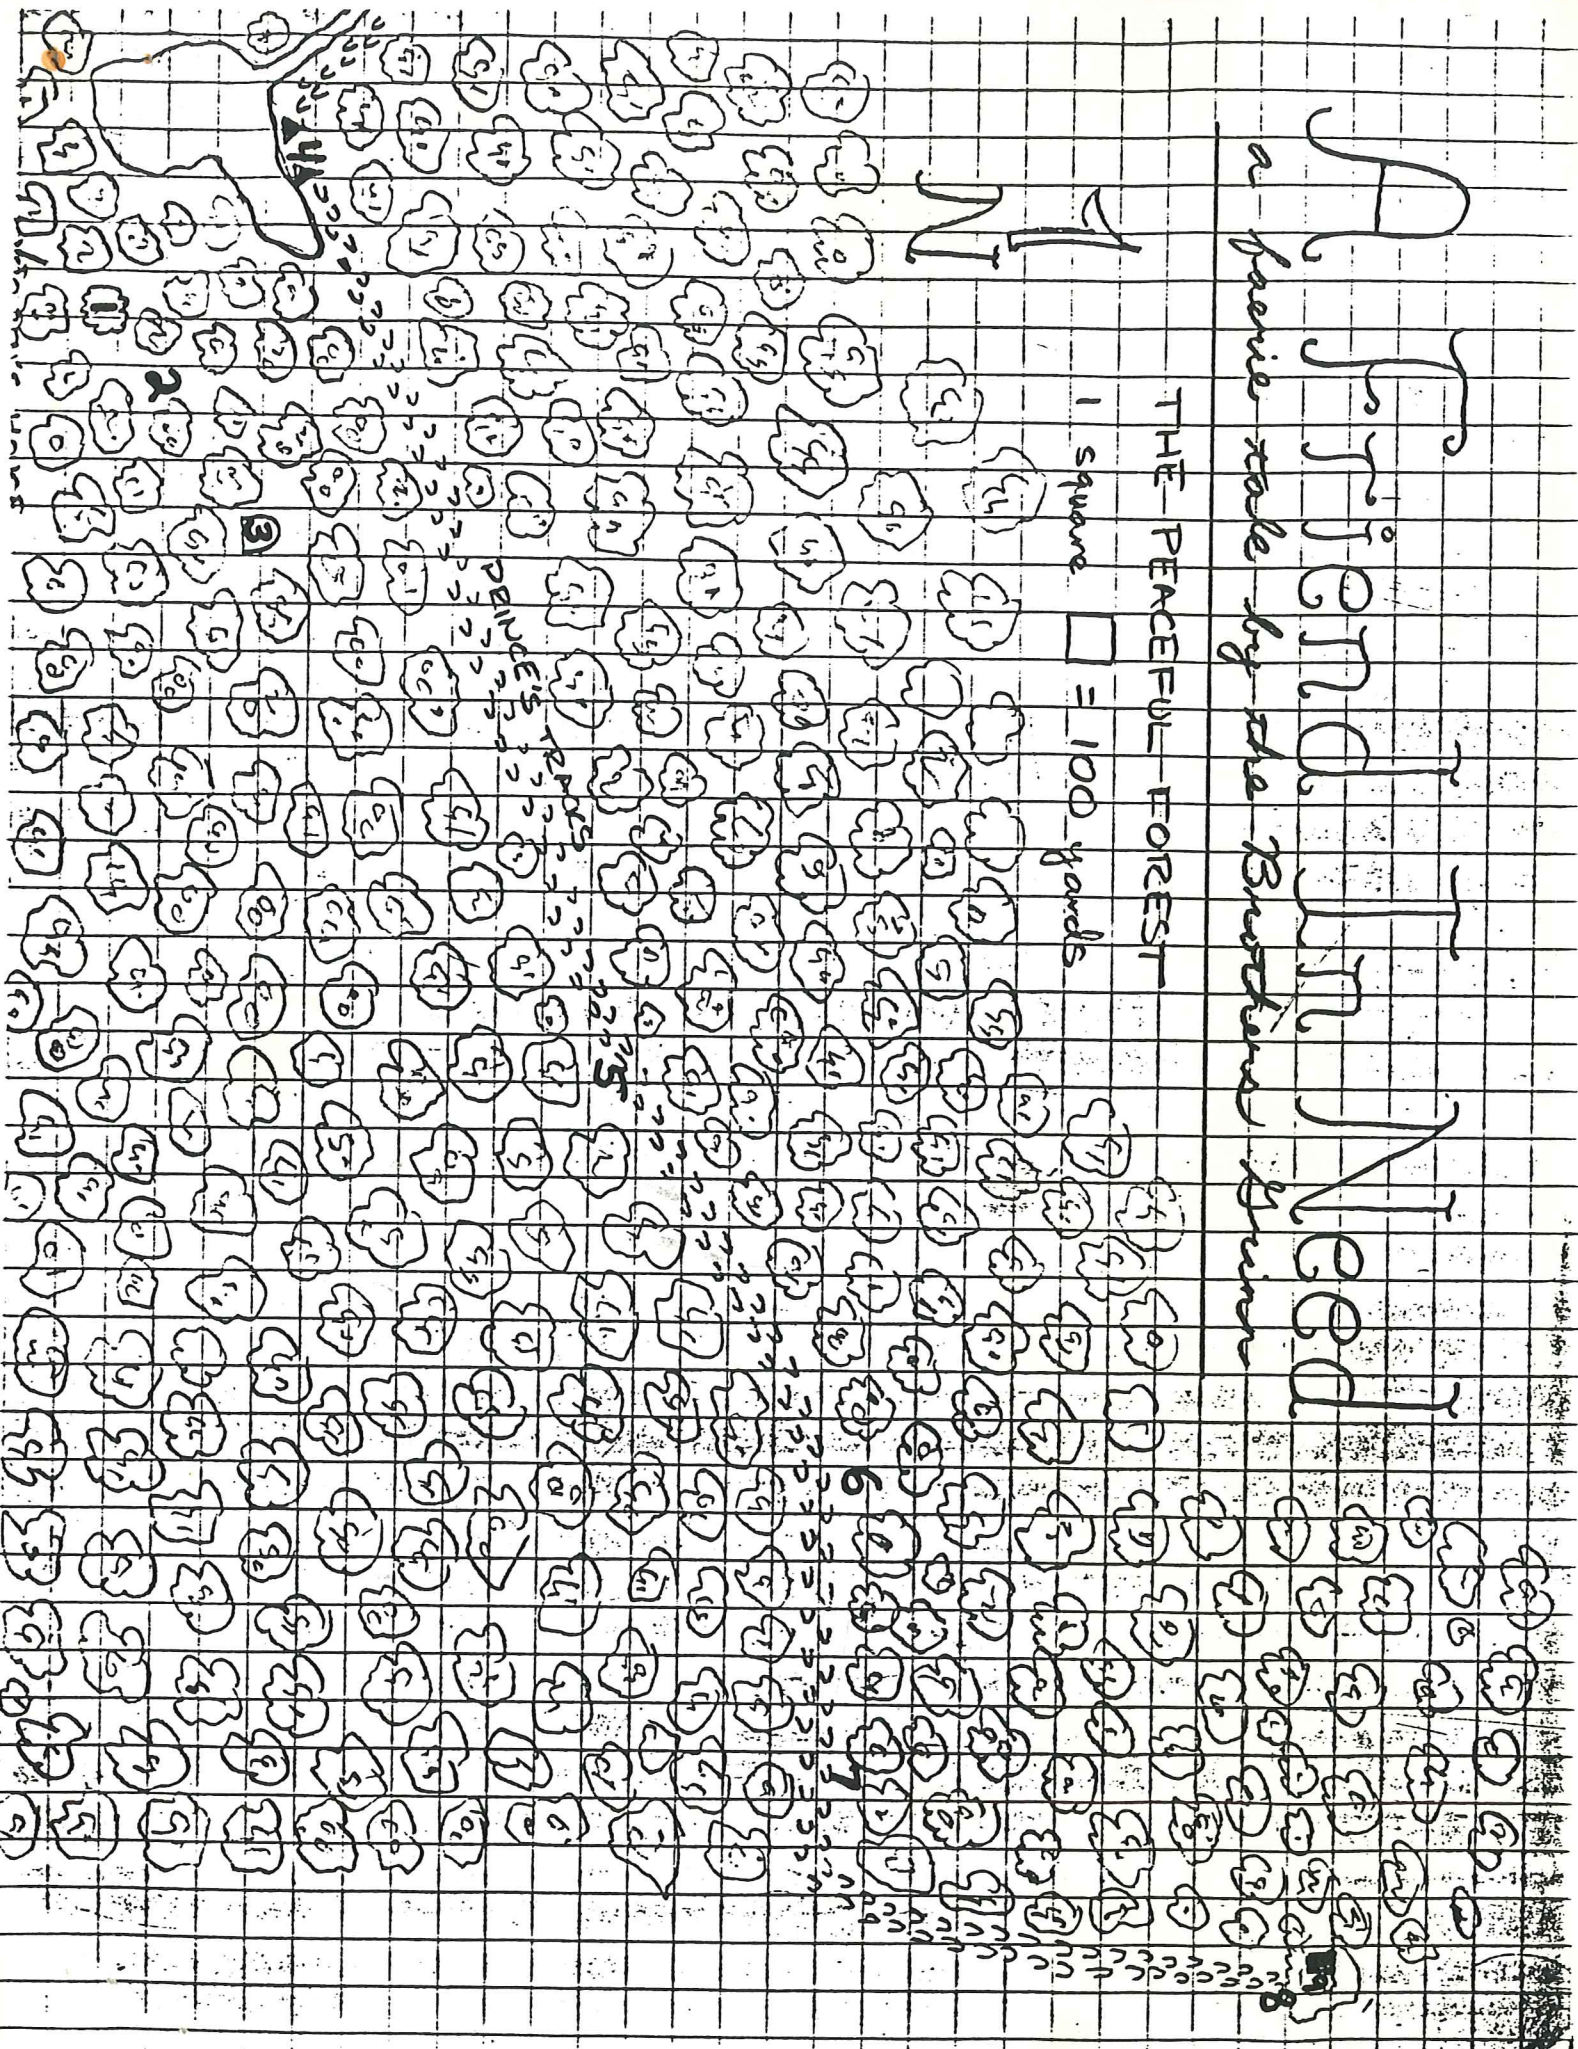 A Friend In Need
a faerie tale by the Brothers Grinn
THE PEACEFUL FOREST
1 square □ = 100 yards
N
PRINCE'S TRACKS
1
2
3
4
5
6
7
8
9